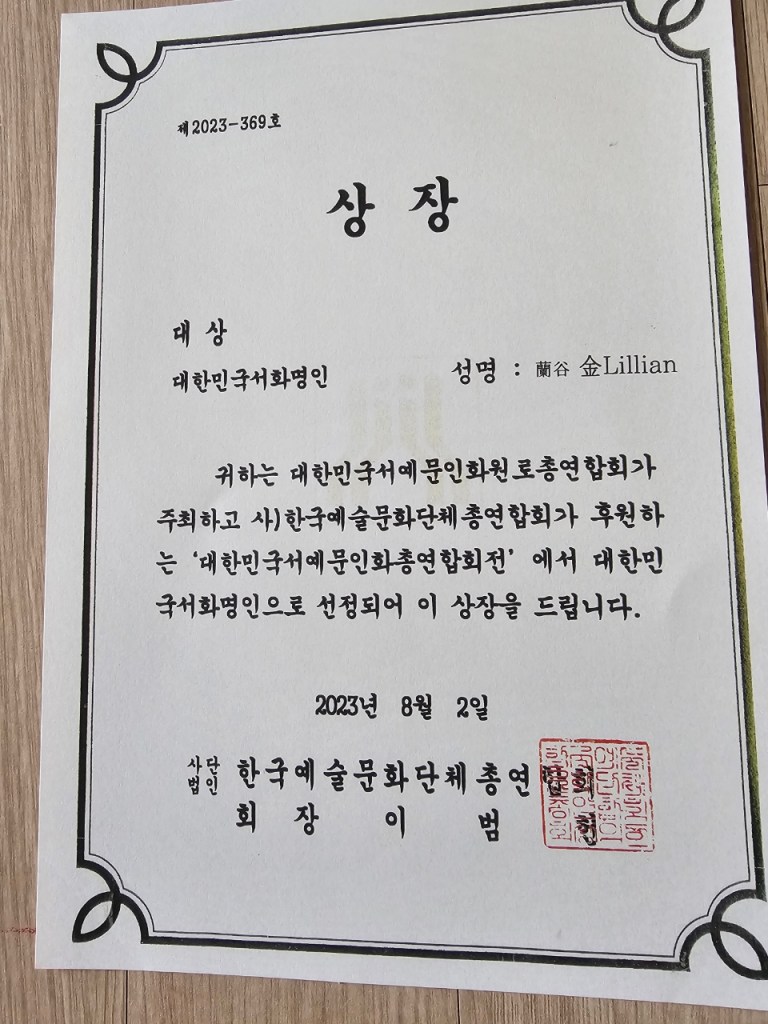 제2023-369호
상 장
대 상
대한민국서화명인 성명 : 蘭谷 金Lillian
귀하는 대한민국서예문인화원로총연합회가
주최하고 사)한국예술문화단체총연합회가 후원하
는 '대한민국서예문인화총연합회전' 에서 대한민
국서화명인으로 선정되어 이 상장을 드립니다.
2023년 8월 2일
사단
법인 한국예술문화단체총연합회
회 장 이 범 헌